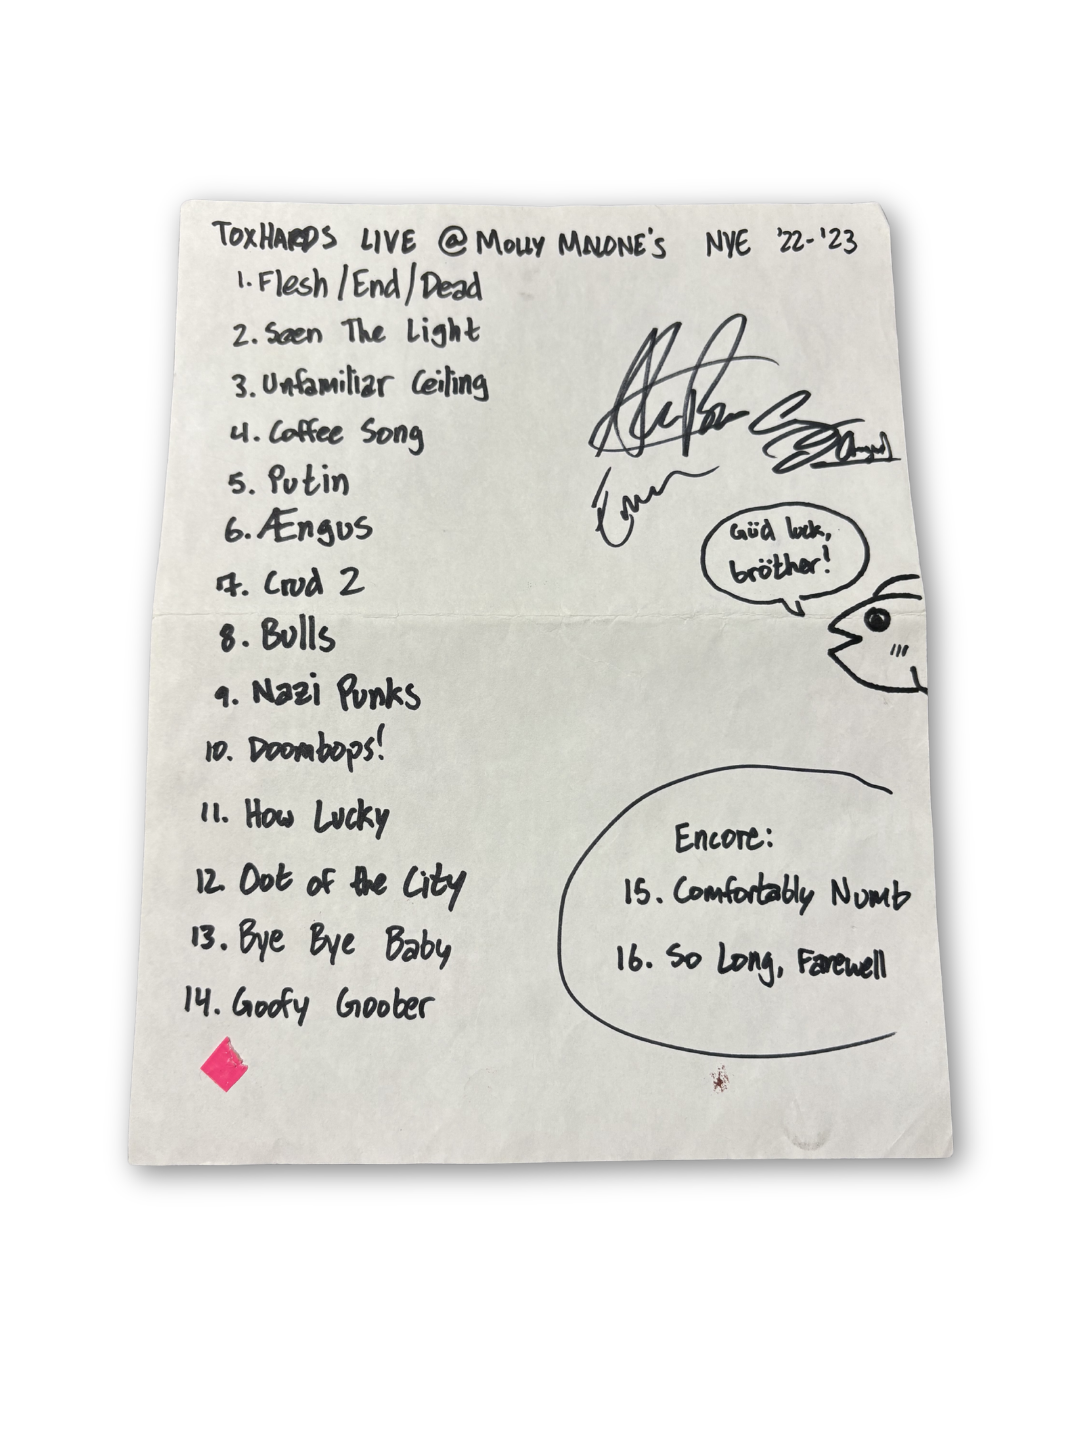 TOXHARDS LIVE @ MOLLY MALONE'S NYE '22-'23
1. Flesh/End/Dead
2. Seen The Light
3. Unfamiliar Ceiling
4. Coffee Song
5. Putin
6. Ængus
7. Crud 2
8. Bulls
9. Nazi Punks
10. Doombops!
11. How Lucky
12. Oot of the City
13. Bye Bye Baby
14. Goofy Goober
Güd luck,
bröther!
Encore:
15. Comfortably Numb
16. So Long, Farewell